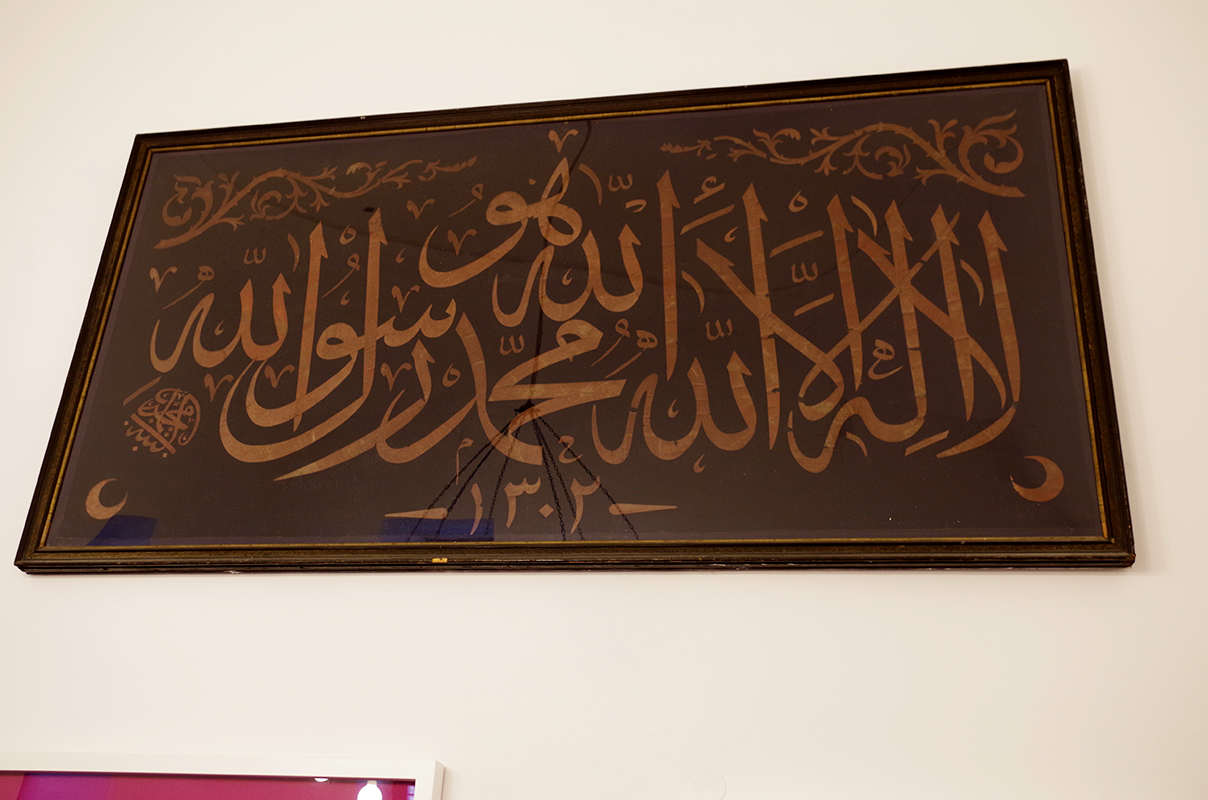 هو
لا اله الا الله الله محمد رسول الله
١٣٠٢